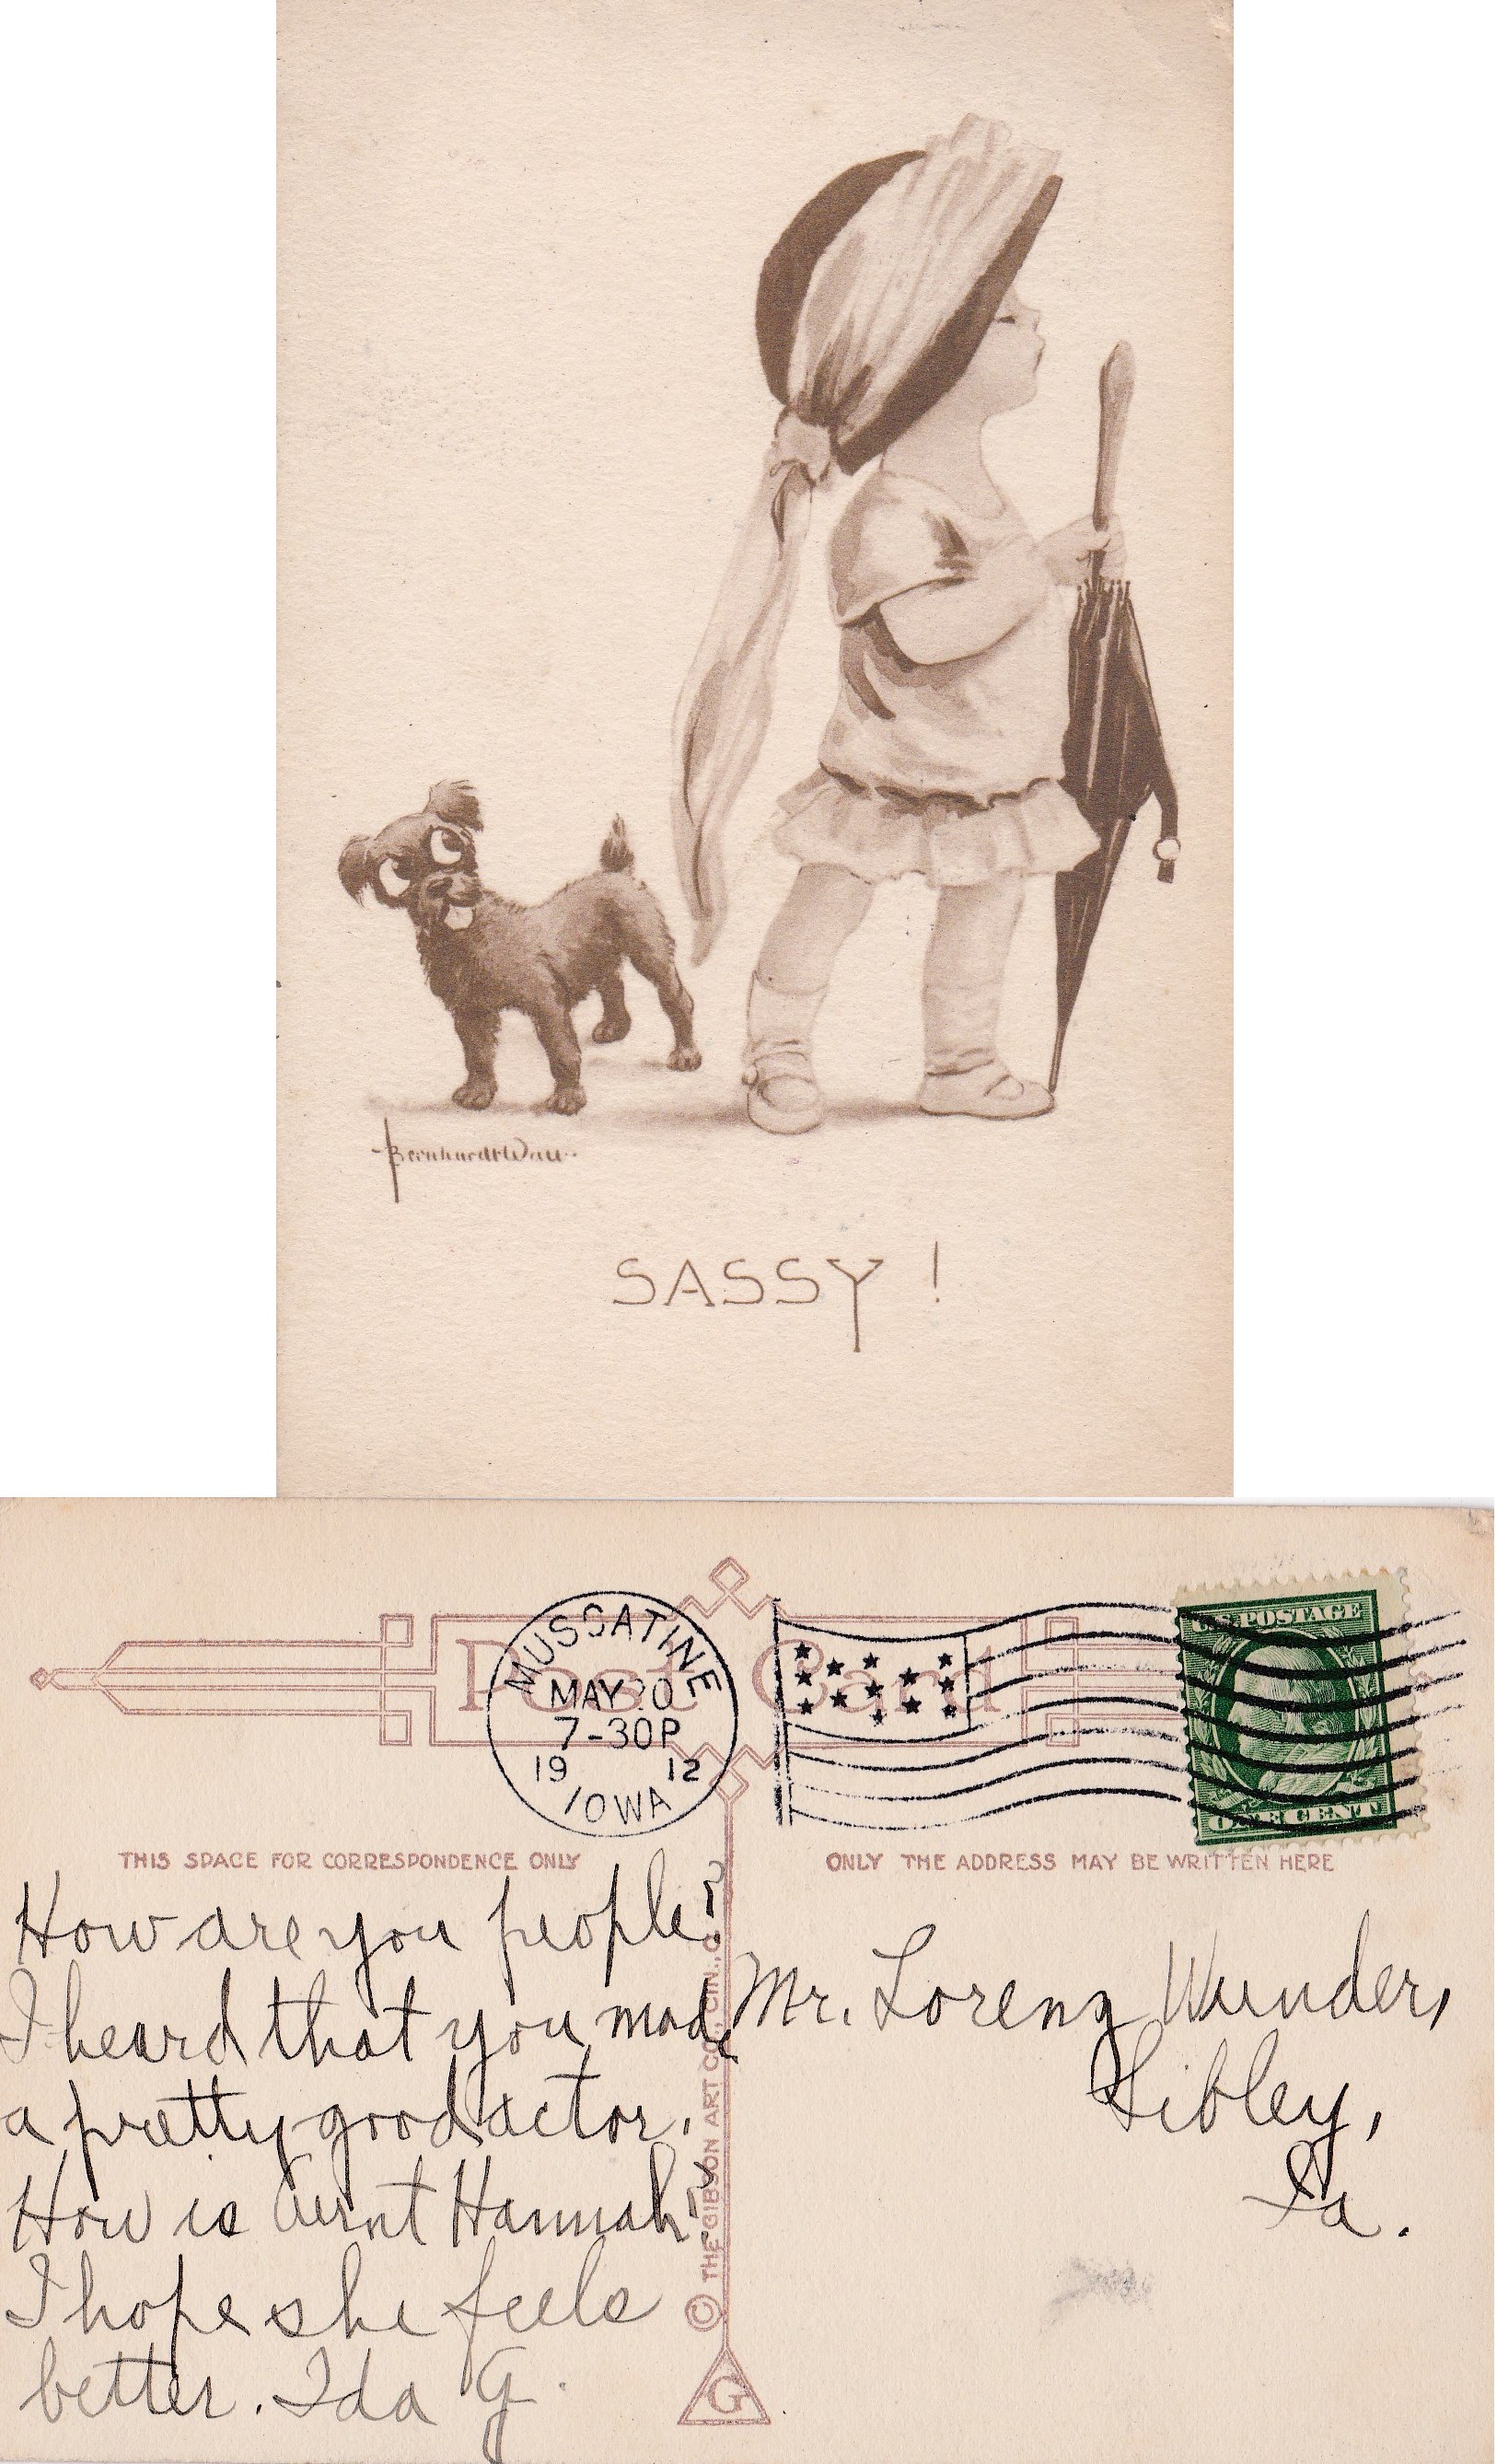 Bernhardt Wall
SASSY!
Post Card
MUSCATINE
MAY 20
7-30P
19 12
IOWA
U.S. POSTAGE
ONE CENT
THIS SPACE FOR CORRESPONDENCE ONLY
ONLY THE ADDRESS MAY BE WRITTEN HERE
How are you people?
I heard that you made
a pretty good actor.
How is Aunt Hannah?
I hope she feels
better. Ida G.
Mr. Lorenz Wunder,
Sibley,
Ia.
© THE GIBSON ART CO., CIN., O.
G